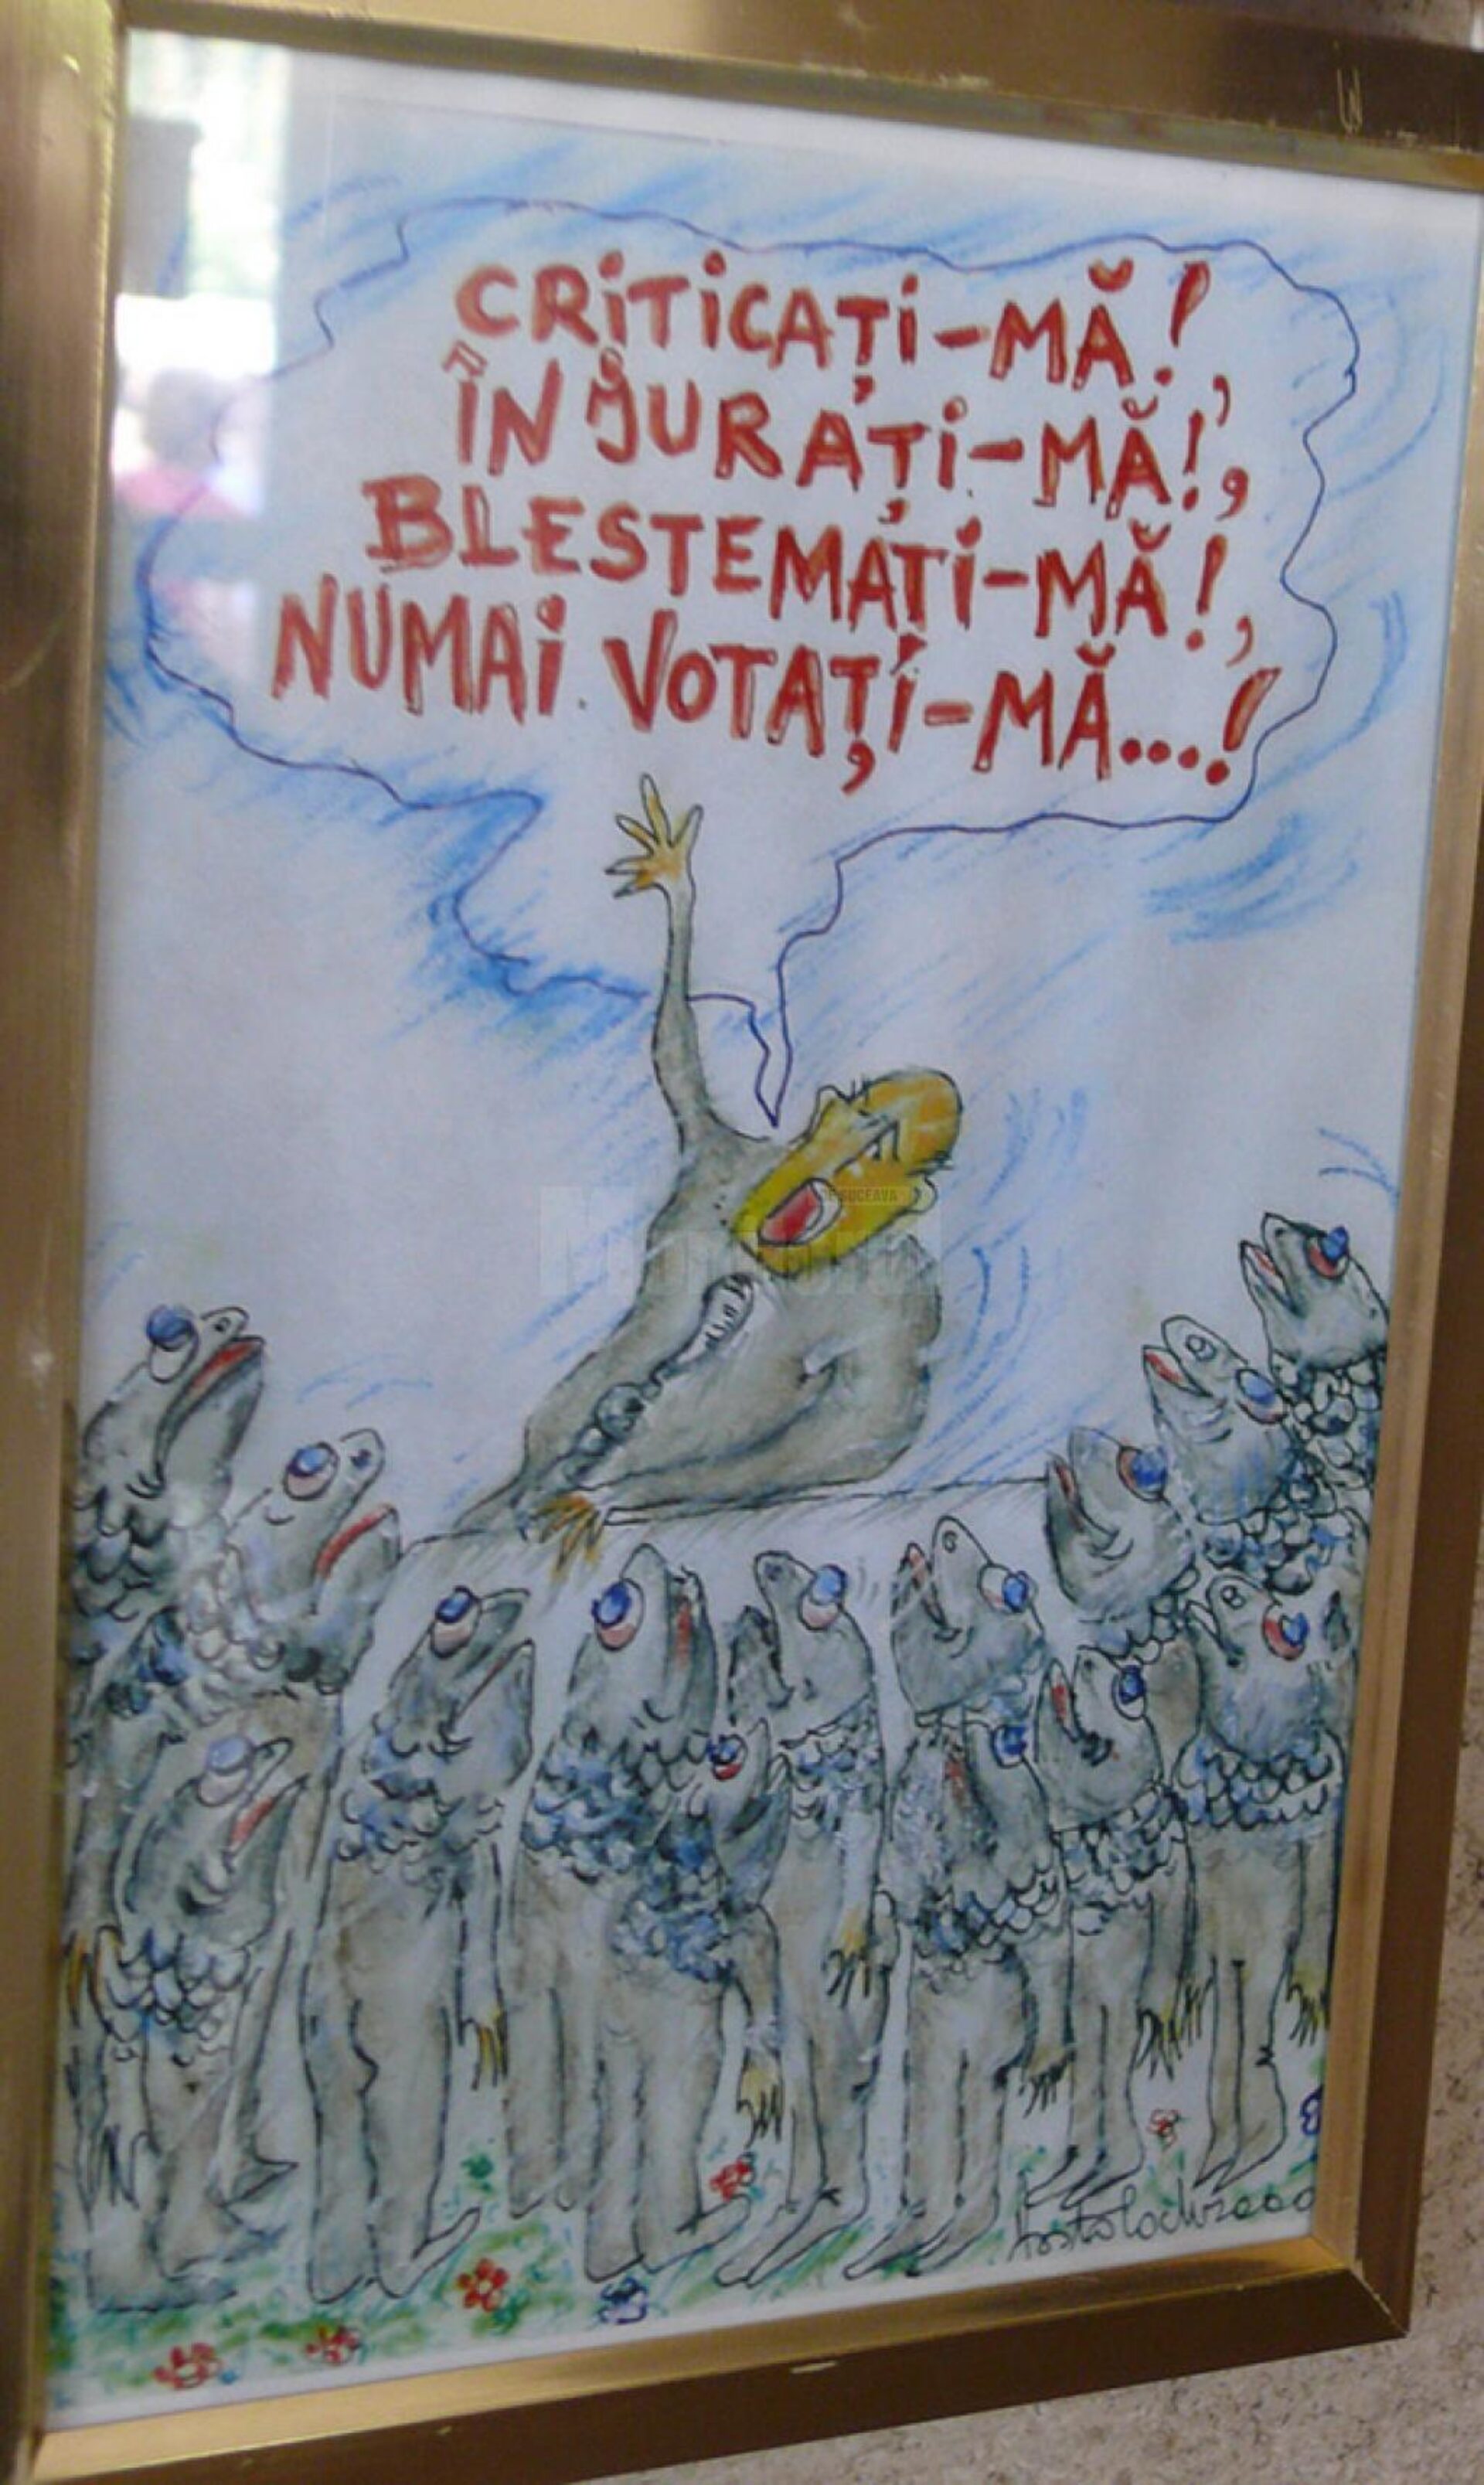 CRITICAȚI-MĂ!,
ÎNJURAȚI-MĂ!,
BLESTEMAȚI-MĂ!,
NUMAI VOTAȚI-MĂ...!
DE SUCEAVA
Monitorul